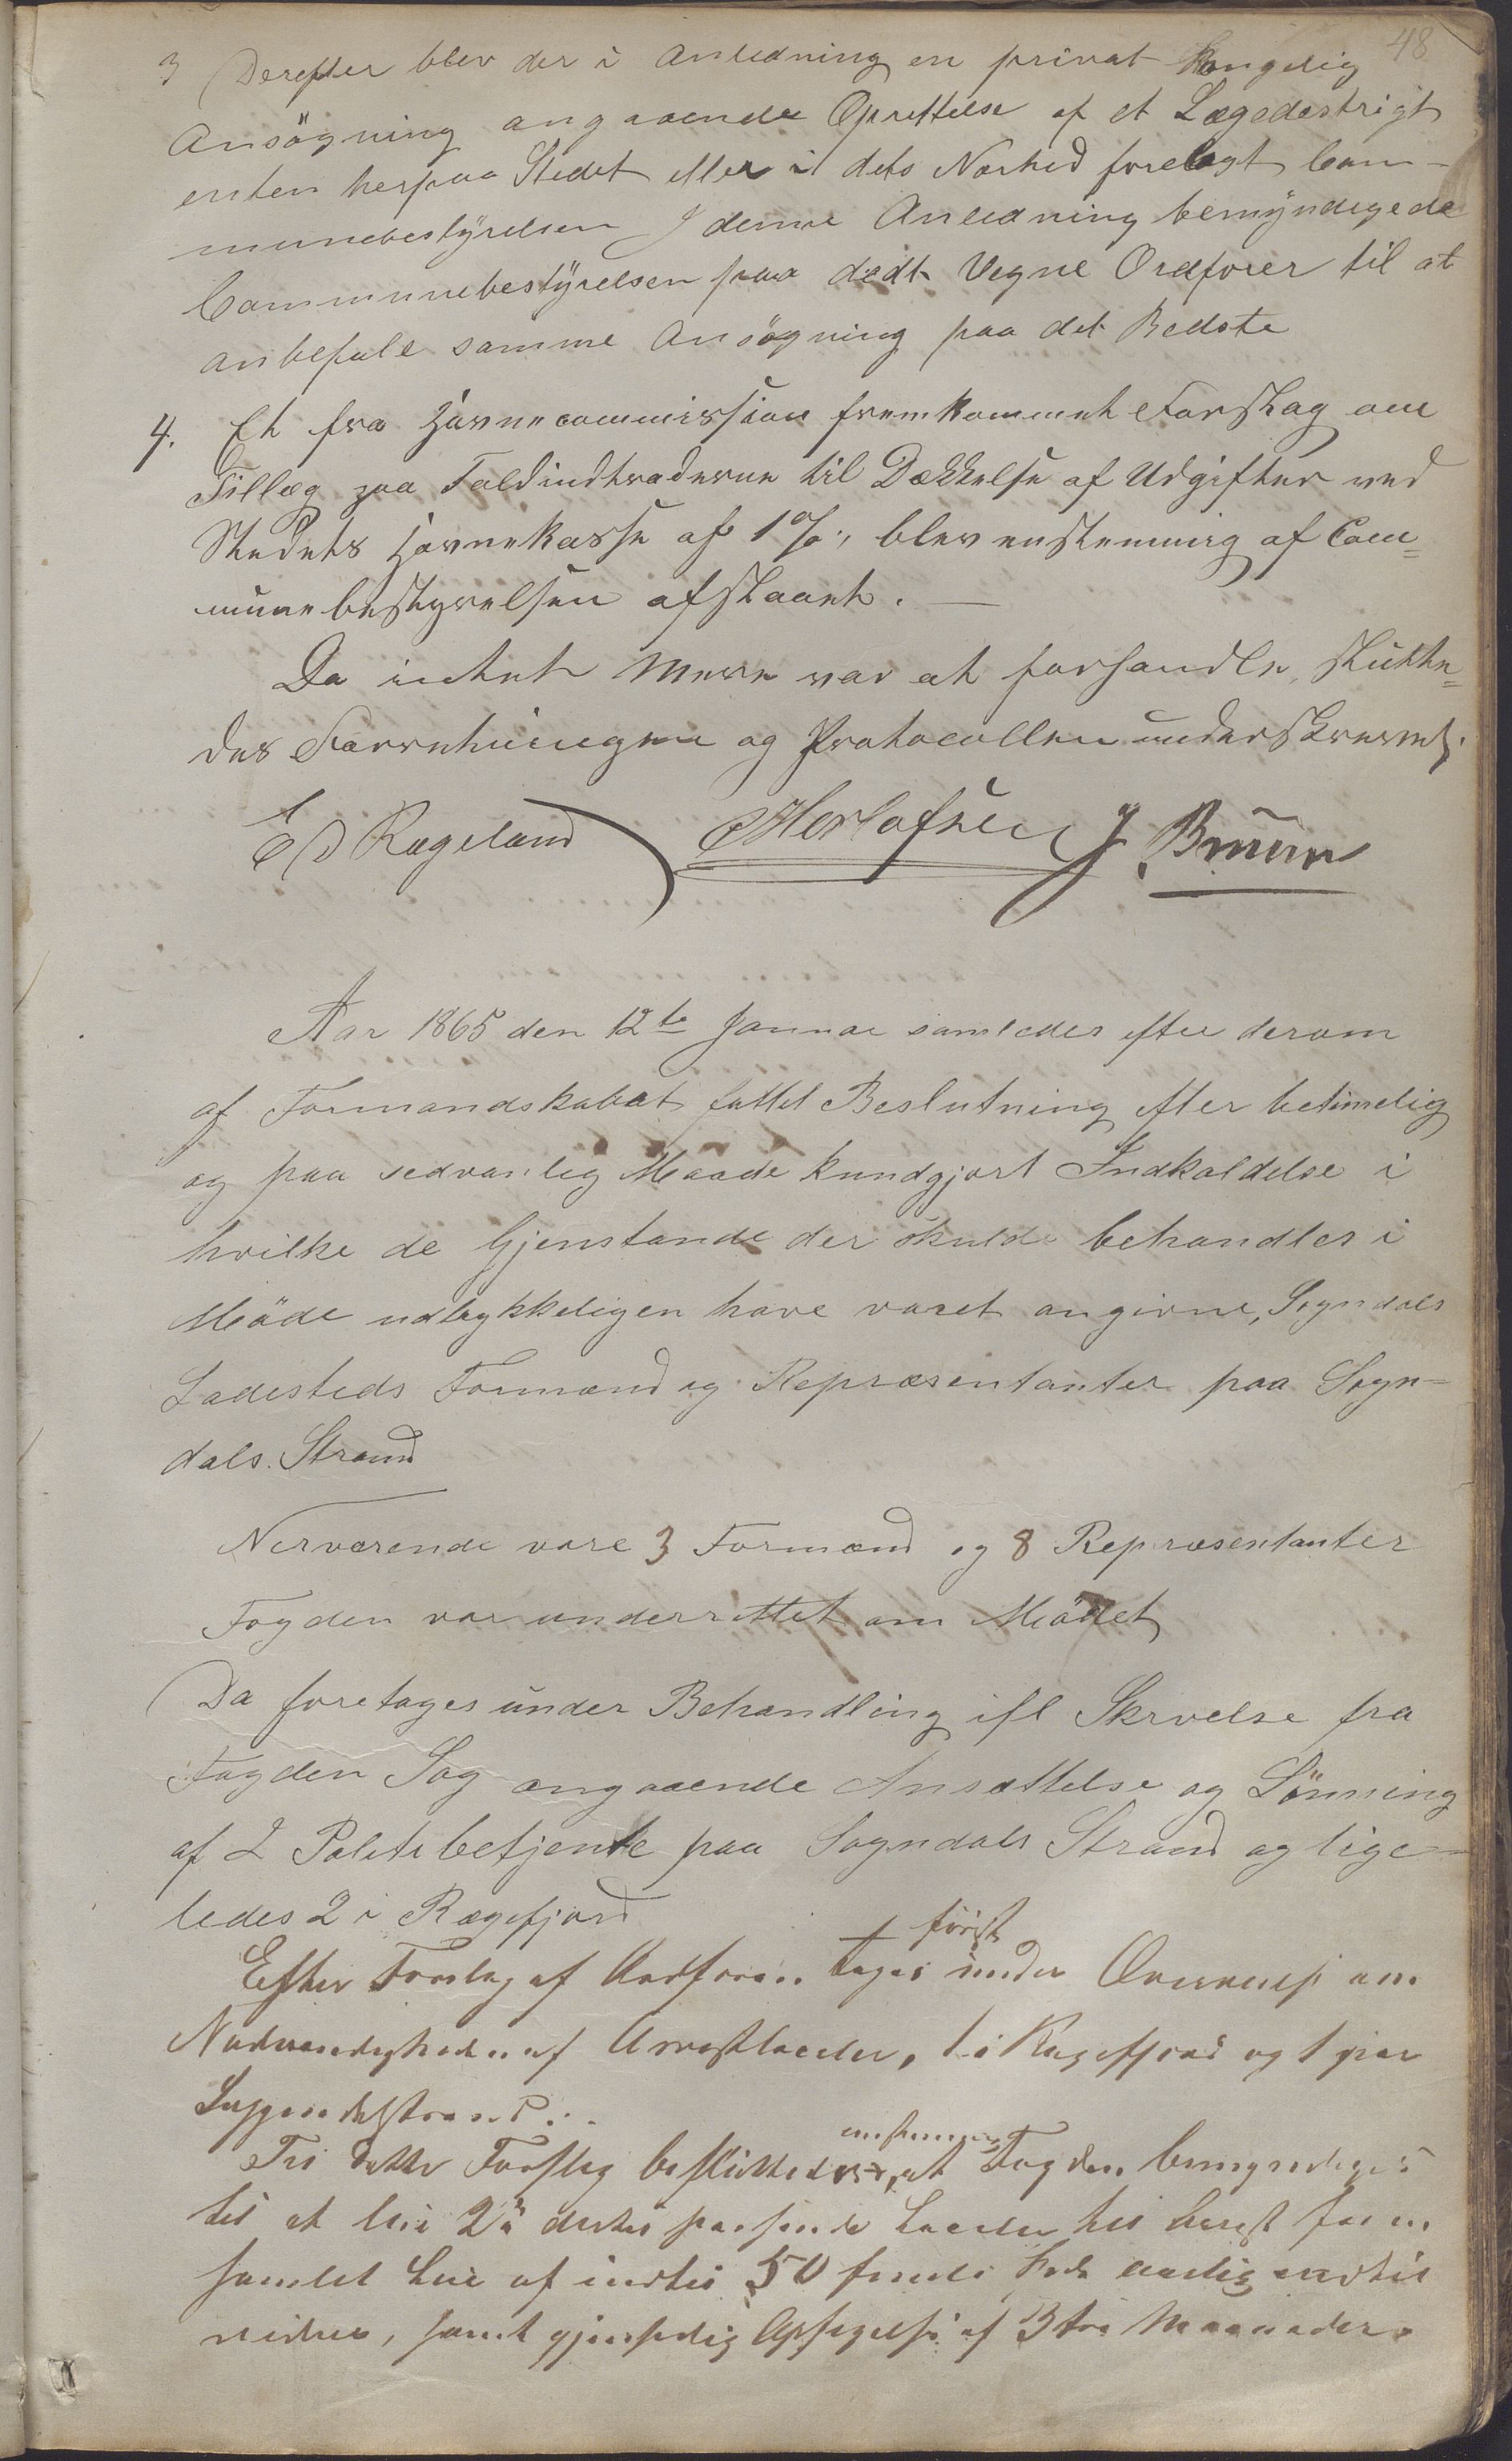 48
3 Derefter blev der i Anledning en privat Kongelig
Ansögning angaaende Oprettelse af et Lægedestrigt
enten herpaa Stedet eller i dets Nærhed forelagt Com-
munebestÿrelsen I denne Anledning bemÿndigede
Communebestÿrelsen paa dedt Vegne Ordfører til at
anbefale samme Ansögning paa det Bedste
4. Et fra Havnecommission fremkommet Forslag om
Tillæg paa Toldindtraderne til Dækkelse af Udgifter ved
Stedets Havnekasse af 1 %, blev enstemmig af Com=
munebestyrelsen afslaaet. —
Da intet mere var at forhandle, slutte=
des Forretningen og Protocollen underskrevet.
E D Rægeland Herlofsen J. Bruun
Aar 1865 den 12te Januar samledes efter derom
af Formandskabet fattet Beslutning efter betimelig
og paa sedvanlig Maade kundgjort Indkaldelse i
hvilke de Gjenstande der skulde behandles i
Möde udtrykkeligen have været angivne, Sogndals
Ladesteds Formænd og Repræsentanter paa Sogn-
dals Strand
Nerværende vare 3 Formænd og 8 Repræsentanter
Fogden var underrettet om Mödet
Da foretages under Behandling ifl Skrvelse fra
Fogden Sag angaaende Ansættelse og Lönning
af 2 Politibetjente paa Sogndals Strand og lige-
ledes 2 i Rægefjord
först
Efter Forslag af Ordføren tages under Overveielse om
Nødvendigheden af Arrestlocaler, 1 i Rægefjord og 1 paa
Soggendalstrand.
enstemmig
Til dette Forslag besluttedes, at Fogden bemyndiges
til at leie 2 dertil passende Localer til Arrest for en
samlet Leie af indtil 50 Spd aarlig indtil
videre, samt gjensidig Opsigelse af 3 tre Maaneder.